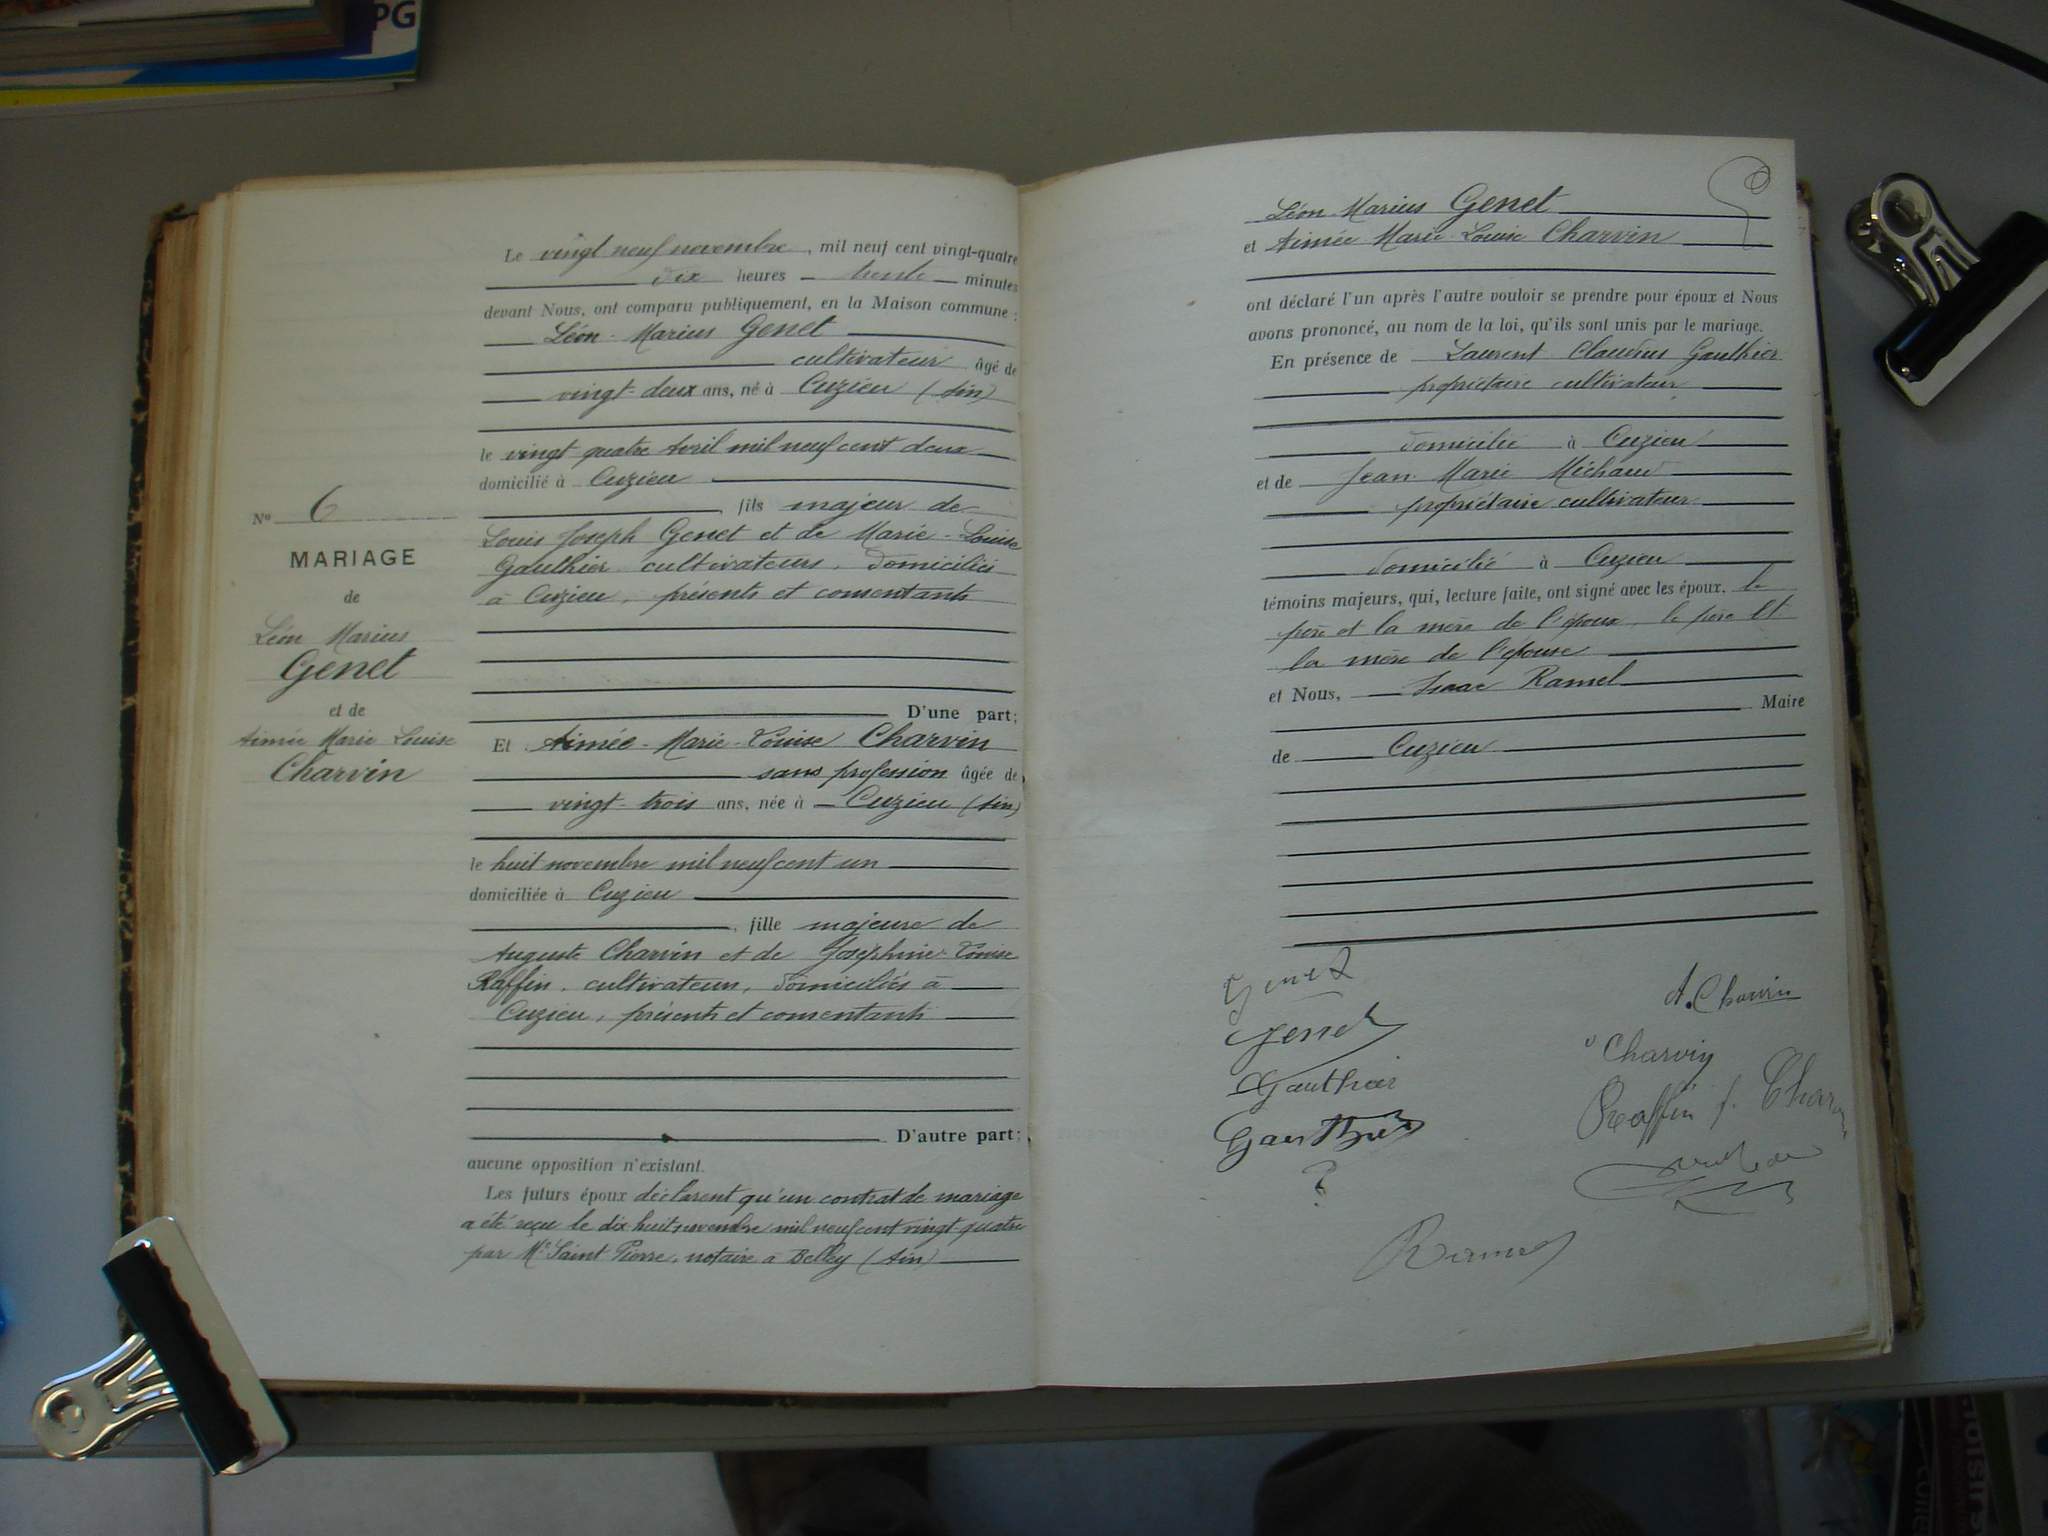 PG
Le vingt neuf novembre, mil neuf cent vingt-quatre
dix heures trente minutes
devant Nous, ont comparu publiquement, en la Maison commune :
Léon-Marius Genet
cultivateur âgé de
vingt-deux ans, né à Cuzieu (Ain)
le vingt quatre Avril mil neuf cent deux
domicilié à Cuzieu
, fils majeur de
Louis Joseph Genet et de Marie-Louise
Gauthier cultivateurs, domiciliés
à Cuzieu, présents et consentants
D'une part;
Et Aimée-Marie-Louise Charvin
sans profession âgée de
vingt-trois ans, née à Cuzieu (Ain)
le huit novembre mil neuf cent un
domiciliée à Cuzieu
, fille majeure de
Auguste Charvin et de Joséphine-Louise
Raffin, cultivateurs, domiciliés à
Cuzieu, présents et consentants
D'autre part;
aucune opposition n'existant.
Les futurs époux déclarent qu'un contrat de mariage
a été reçu le dix huit novembre mil neuf cent vingt-quatre
par Me Saint Pierre, notaire à Belley (Ain)
No 6
MARIAGE
de
Léon Marius
Genet
et de
Aimée Marie Louise
Charvin
Léon-Marius Genet
et Aimée Marie-Louise Charvin
ont déclaré l'un après l'autre vouloir se prendre pour époux et Nous
avons prononcé, au nom de la loi, qu'ils sont unis par le mariage.
En présence de Laurent Claudius Gauthier
propriétaire cultivateur
domicilié à Cuzieu
et de Jean-Marie Michaud
propriétaire cultivateur
domicilié à Cuzieu
témoins majeurs, qui, lecture faite, ont signé avec les époux, le
père et la mère de l'époux, le père et
la mère de l'épouse
et Nous, Isaac Ramel
Maire
de Cuzieu
Genet
Genet
Gauthier
Gauthier
A. Charvin
Charvin
Raffin f. Charvin
Ramel